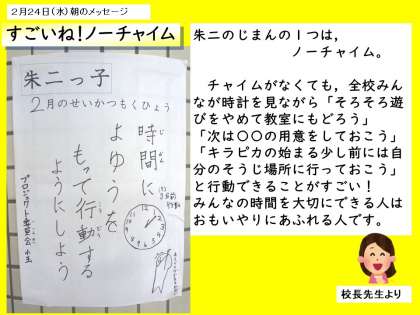 2月24日(水)朝のメッセージ
すごいね!ノーチャイム
朱二っ子
2月のせいかつもくひょう
時間に
よゆうを
もって行動する
ようにしよう
朱二のじまんの1つは,
ノーチャイム。
チャイムがなくても,全校みん
なが時計を見ながら「そろそろ遊
びをやめて教室にもどろう」
「次は〇〇の用意をしておこう」
「キラピカの始まる少し前には自
分のそうじ場所に行っておこう」
と行動できることがすごい!
みんなの時間を大切にできる人は
おもいやりにあふれる人です。
校長先生より